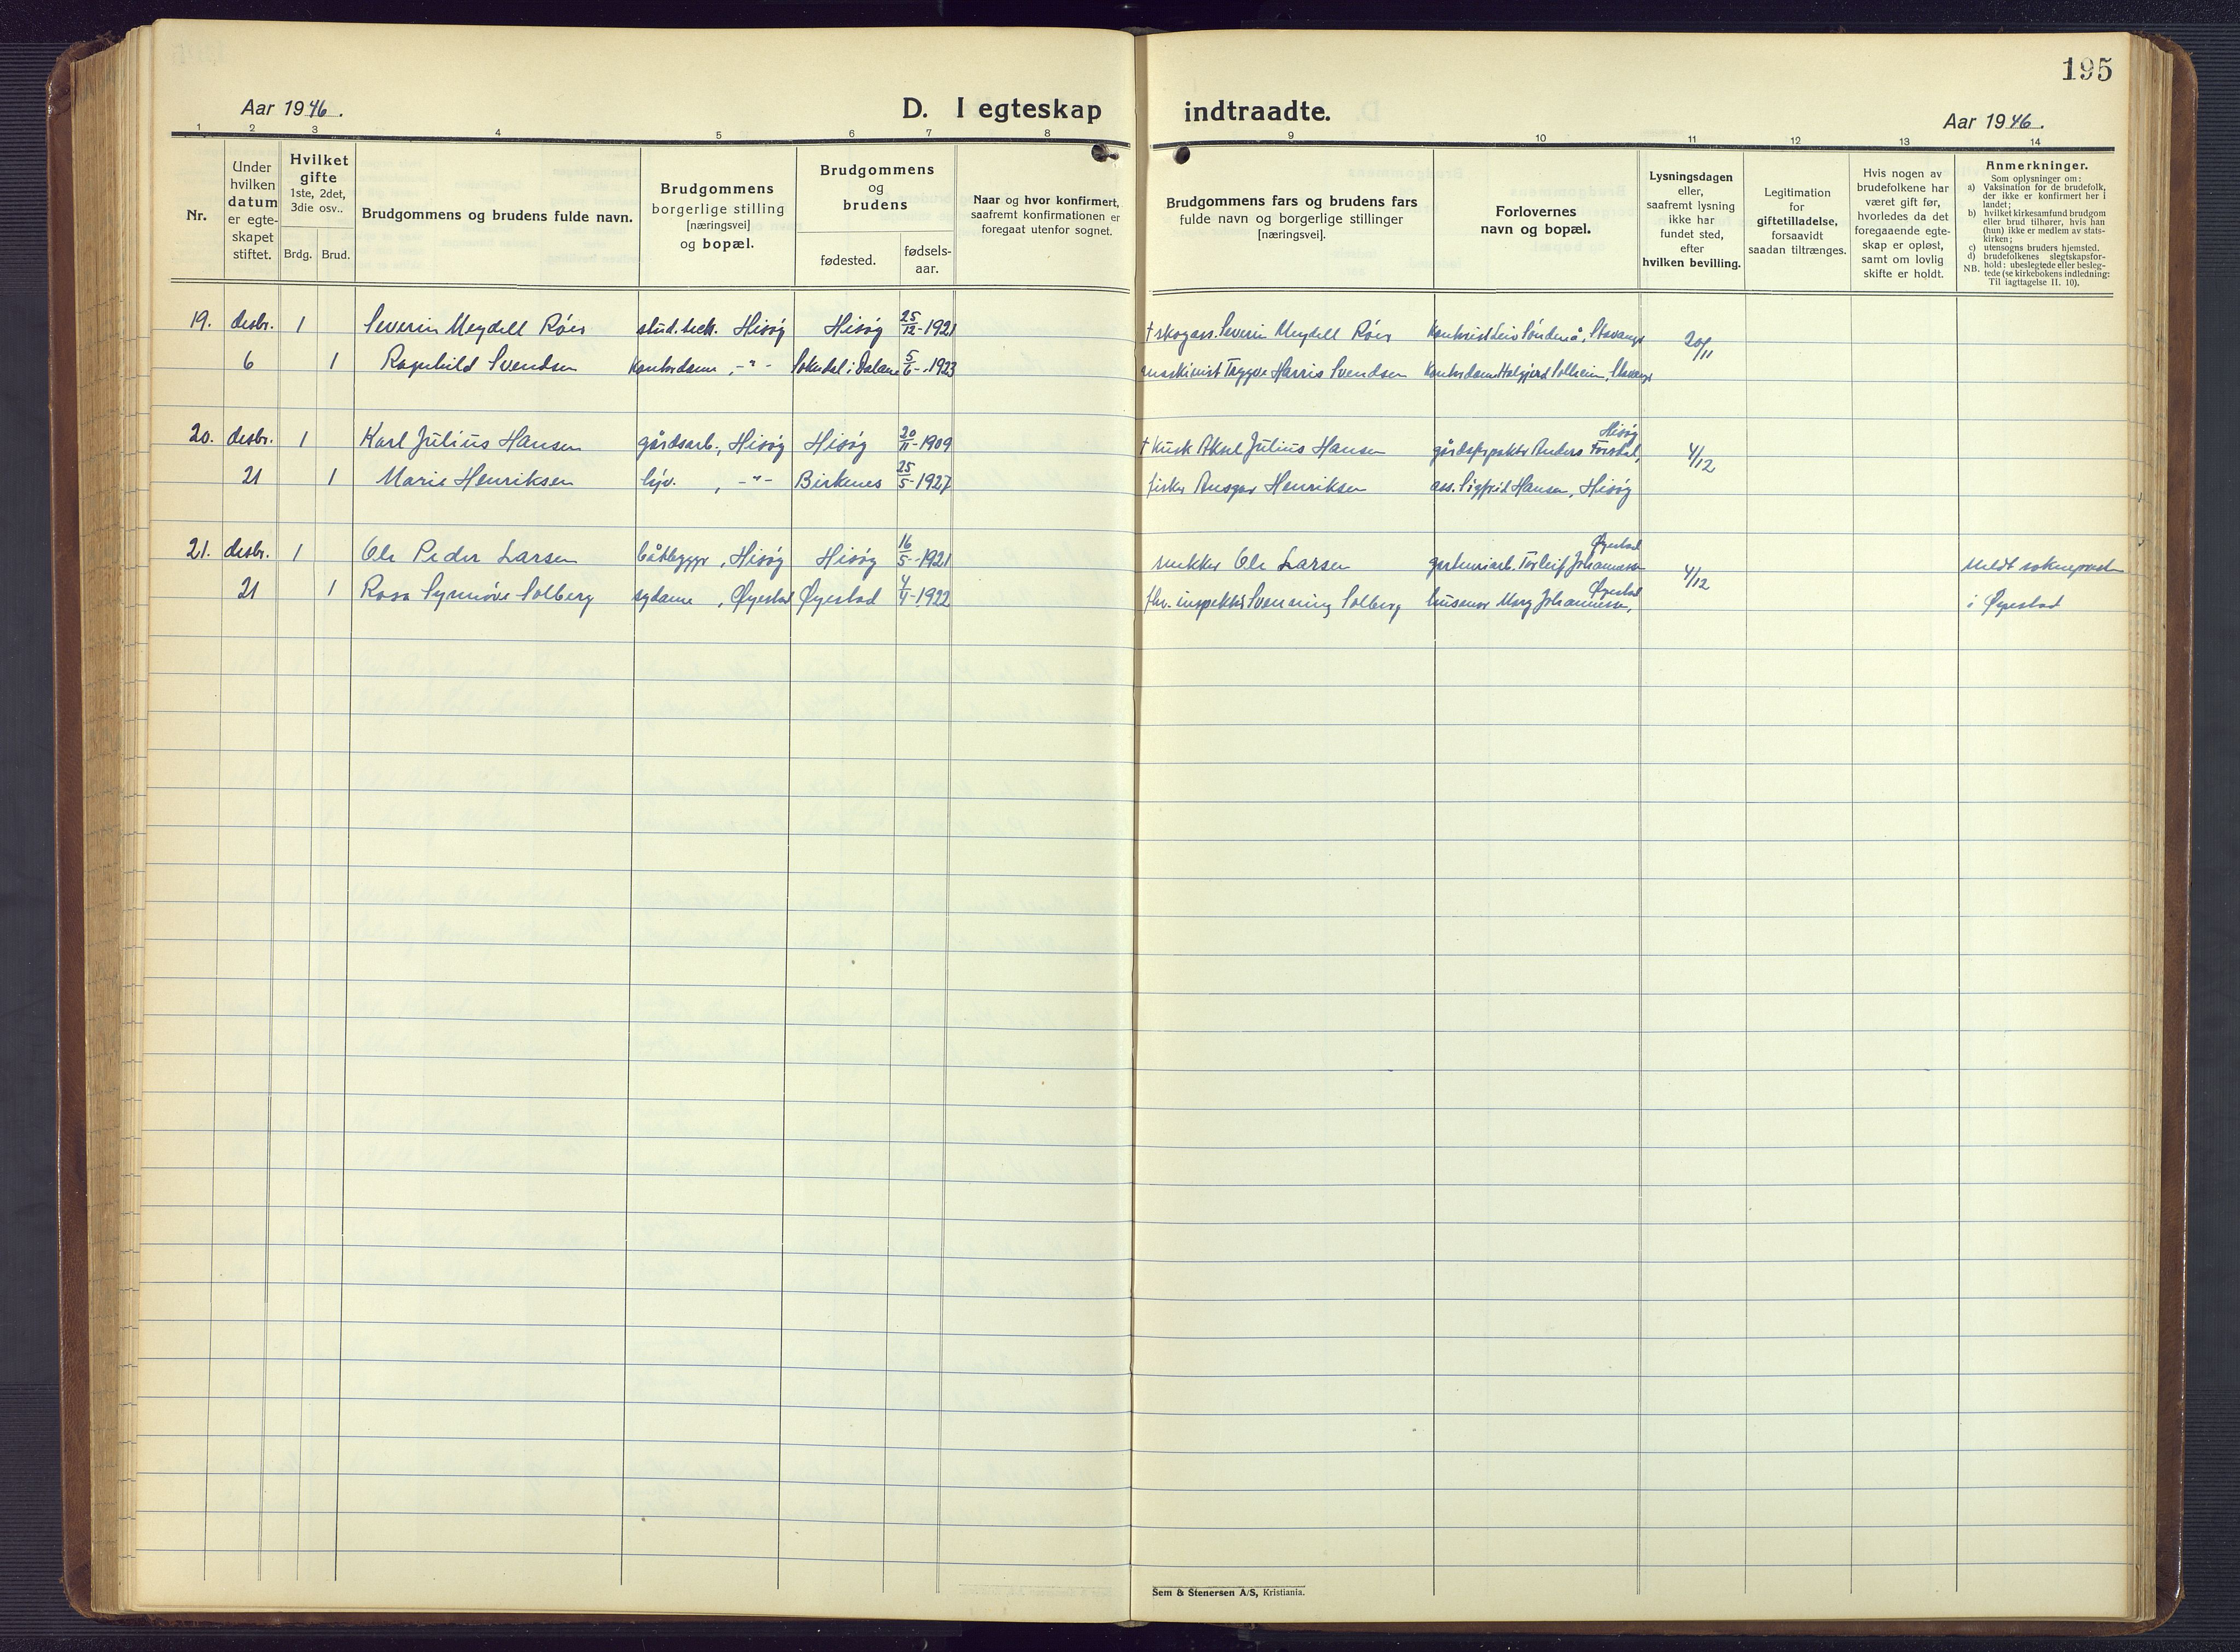 195
Aar 1946.
D. I egteskap indtraadte.
Aar 1946.
1 2 3 4 5 6 7 8 9 10 11 12 13 14
Nr.
Under
hvilken
datum
er egte-
skapet
stiftet.
Hvilket
gifte
1ste, 2det,
3die osv..
Brdg. Brud.
Brudgommens og brudens fulde navn.
Brudgommens
borgerlige stilling
[næringsvei]
og bopæl.
Brudgommens
og
brudens
fødested.
fødsels-
aar.
Naar og hvor konfirmert,
saafremt konfirmationen er
foregaat utenfor sognet.
Brudgommens fars og brudens fars
fulde navn og borgerlige stillinger
[næringsvei].
Forlovernes
navn og bopæl.
Lysningsdagen
eller,
saafremt lysning
ikke har
fundet sted,
efter
hvilken bevilling.
Legitimation
for
giftetilladelse,
forsaavidt
saadan tiltrænges.
Hvis nogen av
brudefolkene har
været gift før,
hvorledes da det
foregaaende egte-
skap er opløst,
samt om lovlig
skifte er holdt.
Anmerkninger.
Som oplysninger om:
a) Vaksination for de brudefolk,
der ikke er konfirmert her i
landet;
b) hvilket kirkesamfund brudgom
eller brud tilhører, hvis han
(hun) ikke er medlem av stats-
kirken;
c) utensogns bruders hjemsted.
d) brudefolkenes slegtskapsfor-
hold: ubeslegtede eller besleg-
NB. tede (se kirkebokens indledning:
Til iagttagelse II. 10).
19. desbr. 1 Severin Meydell Röer stud. tech. Hisöy Hisöy 25/12-1921 † skogass. Severin Meydell Röer Stavanger 20/11
6 1 Ragnhild Svendsen Kontordame, -"- Sokndal i Dalane 5/6-1923 maskinist Tryggve Harris Svendsen kontordame Solheim, Stavanger
20. desbr. 1 Karl Julius Hansen gårdsarb., Hisöy Hisöy 20/11-1909 † Kusk Aksel Julius Hansen Anders Hisöy 4/12
21 1 Marie Henriksen hjv., -"- Birkenes 25/5-1927 fisker Ansgar Henriksen ass. Sigfrid Hansen, Hisöy
21. desbr. 1 Ole Peder Larsen båtbygger, Hisöy Hisöy 16/5-1921 snekker Ole Larsen gartneriarb. Torleif Johannessen Øyestad 4/12 Meldt soknepresten
21 1 Rosa Synnöve Solberg sydame, Øyestad Øyestad 4/1-1922 fhv. inspektör Svenning Solberg husmor Mary Johannessen, Øyestad i Øyestad
Sem & Stenersen A/S, Kristiania.